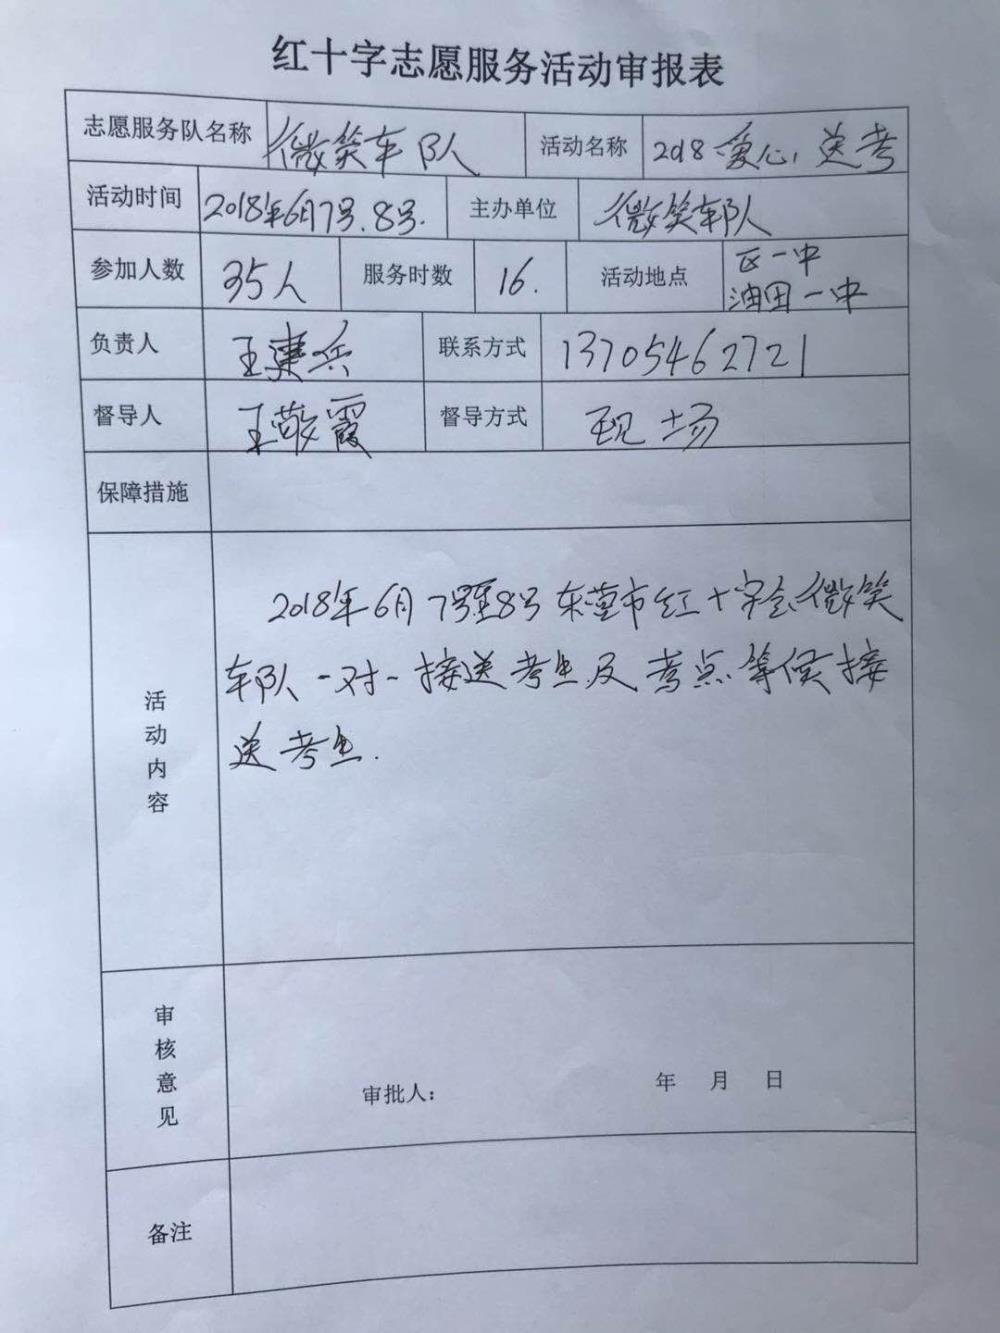 红十字志愿服务活动审报表
志愿服务队名称 微笑车队 活动名称 2018爱心送考
活动时间 2018年6月7号.8号. 主办单位 微笑车队
参加人数 35人 服务时数 16. 活动地点 区一中
油田一中
负责人 王建兵 联系方式 13705462721
督导人 王敬霞 督导方式 现场
保障措施
活动内容
2018年6月7号至8号东营市红十字会微笑
车队一对一接送考生及考点等候接
送考生.
审核意见
审批人： 年 月 日
备注